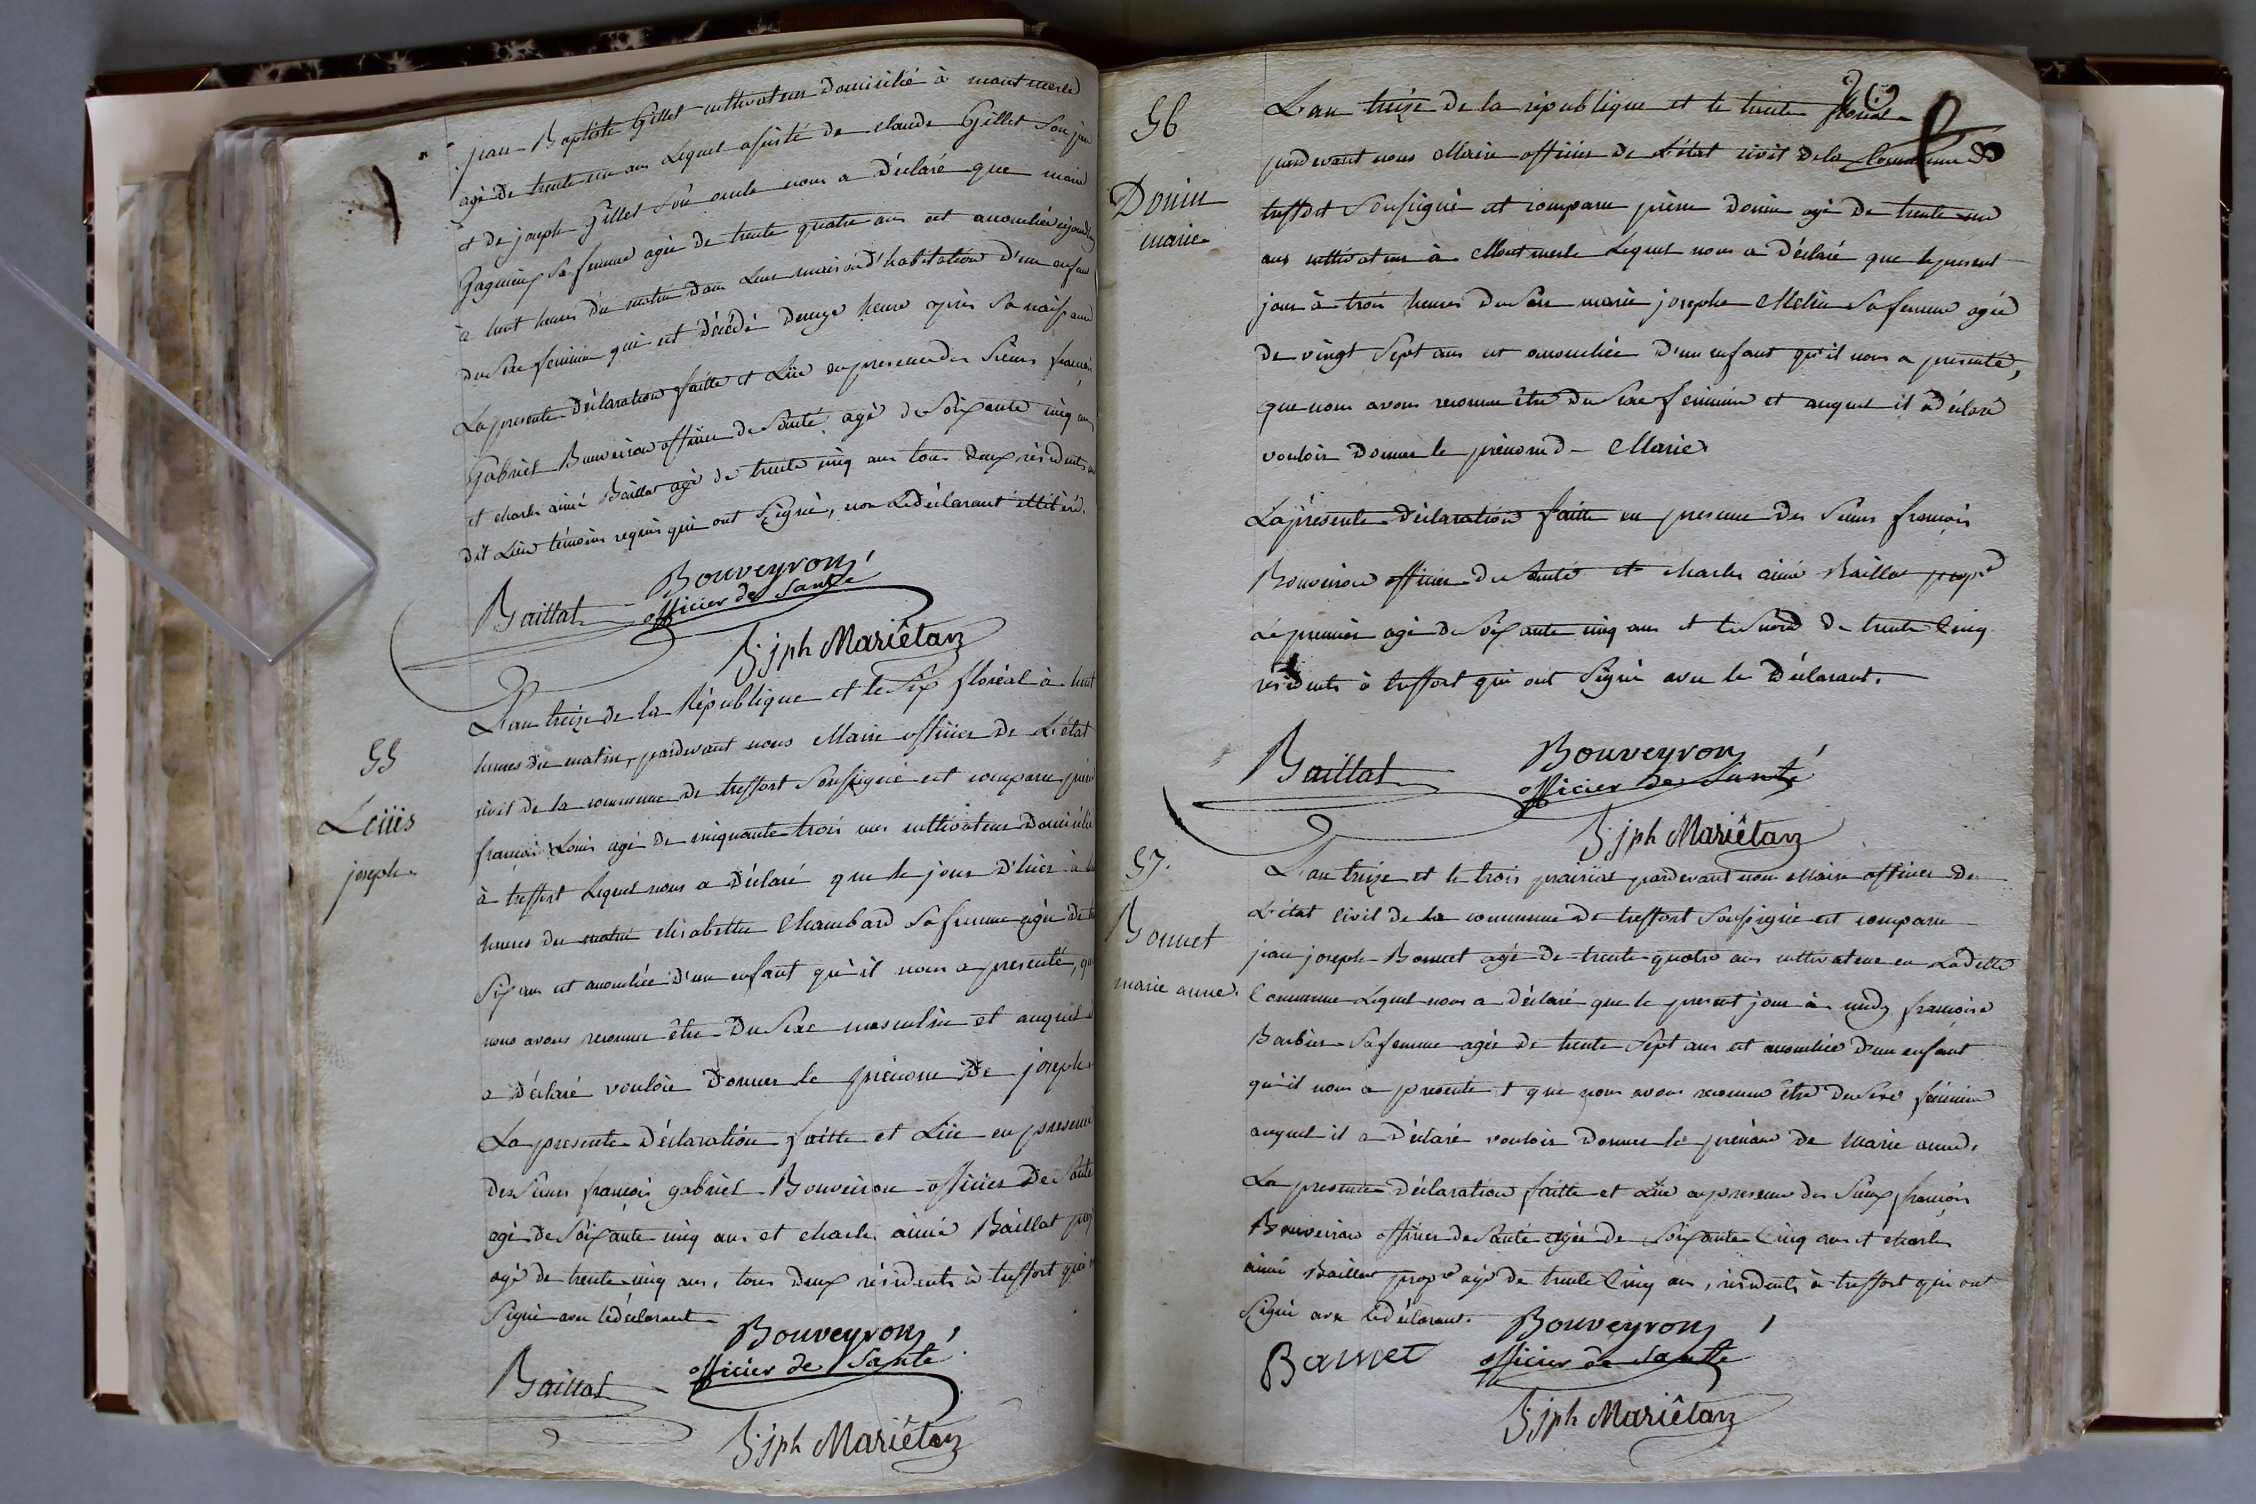 jean Baptiste Gillet cultivateur Domicilié à montmerle
agé De trente un ans Lequel assisté de claude Gillet Son pere
et De joseph Gillet Son oncle nous a Déclaré que marie
Sa femme agée de trente quatre ans est accouchée
à huit heures du matin dans Leur maison d'habitation D'un enfant
du Sexe feminin qui est décédé heure après Sa naissance
La presente Déclaration faitte et Lüe en presence des Sieurs françois
Gabriel Bouveiron officier de Santé agé de Soixante cinq ans
et charles aimé Baillat agé de trente cinq ans tous deux résidents au
dit Lieu témoins requis qui ont Signé, non Le Déclarant illitéré.
Baillat Bouveyron
officier de Santé
jph Mariêtan
L'an treize de la République et le Six floréal à huit
heures du matin, pardevant nous Maire officier de L'état
civil de la commune de treffort Soussigné est comparu
françois Louis agé de cinquante trois ans cultivateur Domicilié
à treffort Lequel nous a Déclaré que le jour D'hier à
heures du matin elisabeth Chambard Sa femme agée de
Six ans est accouchée D'un enfant qu'il nous a presenté, que
nous avons reconnu être Du Sexe masculin et auquel il
a Déclaré vouloir Donner le prénom De joseph
La presente Déclaration faitte et Lüe en presence
Des Sieurs françois gabriel Bouveiron officier De Santé
agé De Soixante cinq ans et charles aimé Baillat
agé de trente cinq ans, tous deux résidents à treffort qui
Signé avec le déclarant
Bouveyron
Baillat officier de Santé
jph Mariêtan
55
Loüis
joseph
56
Donin
marie
L'an treize de la république et le trente floréal
pardevant nous Maire officier de L'état civil de la Commune De
treffort Soussigné est comparu pierre Donin agé De trente
ans cultivateur à Montmerle Lequel nous a Déclaré que le present
jour à trois heures du Soir marie josephe Melin Sa femme agée
de vingt Sept ans est accouchée D'un enfant qu'il nous a presenté,
que nous avons reconnu être Du Sexe feminin et auquel il a déclaré
vouloir Donner le prénom De Marie
La présente Déclaration faitte en presence Des Sieurs françois
Bouveiron officier De Santé et charles aimé Baillat prop.re
Le premier agé De Soixante cinq ans et le Second De trente Cinq
résidents à treffort qui ont Signé avec le Déclarant.
Baillat Bouveyron
officier de Santé
jph Mariêtan
57.
Bonnet
marie anne.
L'an treize et le trois prairial pardevant nous Maire officier De
L'état Civil de la commune De treffort Soussigné est comparu
jean joseph Bonnet agé De trente quatre ans cultivateur en Laditte
Commune Lequel nous a déclaré que le present jour à midy françoise
Barbier Sa femme agée de trente Sept ans est accouchée d'un enfant
qu'il nous a presenté et que nous avons reconnu être du Sexe féminin
auquel il a Déclaré vouloir Donner le prénom de Marie anne.
La presente Déclaration faitte et Lüe en presence des Sieurs françois
Bouveiron officier De Santé agée De Soixante Cinq ans et charles
aimé Baillat prop.re agé De trente Cinq ans, résidents à treffort qui ont
Signé avec Le déclarant.
Bonnet Bouveyron
officier de Santé
jph Mariêtan